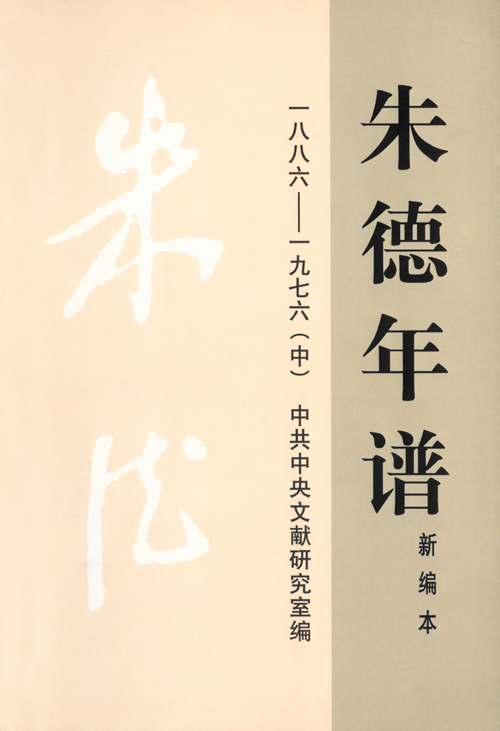 朱德年谱
新编本
一八八六——一九七六（中） 中共中央文献研究室编
朱德